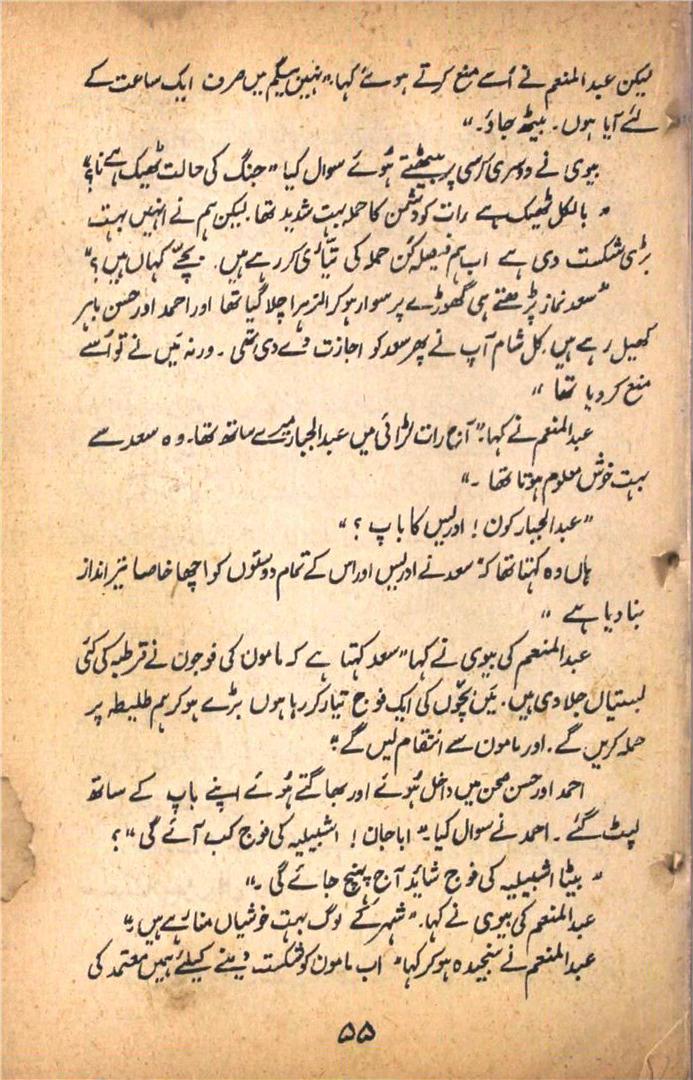 لیکن عبدالمنعم نے اُسے منع کرتے ہوئے کہا۔" نہیں بیگم میں صرف ایک ساعت کے
لئے آیا ہوں۔ بیٹھ جاؤ۔"
بیوی نے دوسری کرسی پر بیٹھتے ہُوئے سوال کیا "جنگ کی حالت ٹھیک ہے نا؟"
"بالکل ٹھیک ہے رات کو دشمن کا حملہ بہت شدید تھا لیکن ہم نے انہیں بہت
بڑی شکست دی ہے اب ہم فیصلہ کُن حملہ کی تیّاری کر رہے ہیں۔ بچّے کہاں ہیں؟"
"سعد نماز پڑھتے ہی گھوڑے پر سوار ہو کر الزہرا چلا گیا تھا اور احمد اور حسن باہر
کھیل رہے ہیں کل شام آپ نے پھر سعد کو اجازت دے دی تھی۔ ورنہ میَں نے تو اُسے
منع کر دیا تھا"
عبدالمنعم نے کہا۔" آج رات لڑائی میں عبدالجبار میرے ساتھ تھا۔ وہ سعد سے
بہت خوش معلوم ہوتا تھا۔"
"عبدالجبار کون! ادریس کا باپ؟"
ہاں وہ کہتا تھا کہ سعد نے ادریس اور اس کے تمام دوستوں کو اچھا خاصا تیر انداز
بنا دیا ہے"
عبدالمنعم کی بیوی نے کہا "سعد کہتا ہے کہ مامون کی فوجون نے قرطبہ کی کئی
بستیاں جلا دی ہیں۔ میَں بچّوں کی ایک فوج تیار کر رہا ہوں بڑے ہو کر ہم طلیطہ پر
حملہ کریں گے۔ اور مامون سے انتقام لیں گے"
احمد اور حسن صحن میں داخل ہُوئے اور بھاگتے ہُوئے اپنے باپ کے ساتھ
لپٹ گئے۔ احمد نے سوال کیا۔" اباجان! اشبیلیہ کی فوج کب آئے گی"؟
"بیٹا اشبیلیہ کی فوج شائد آج پہنچ جائے گی۔"
عبدالمنعم کی بیوی نے کہا۔" شہر کے لوگ بہت خوشیاں منا رہے ہیں"
عبدالمنعم نے سنجیدہ ہو کر کہا" اب مامون کو شکست دینے کیلئے ہمیں معتمد کی
۵۵